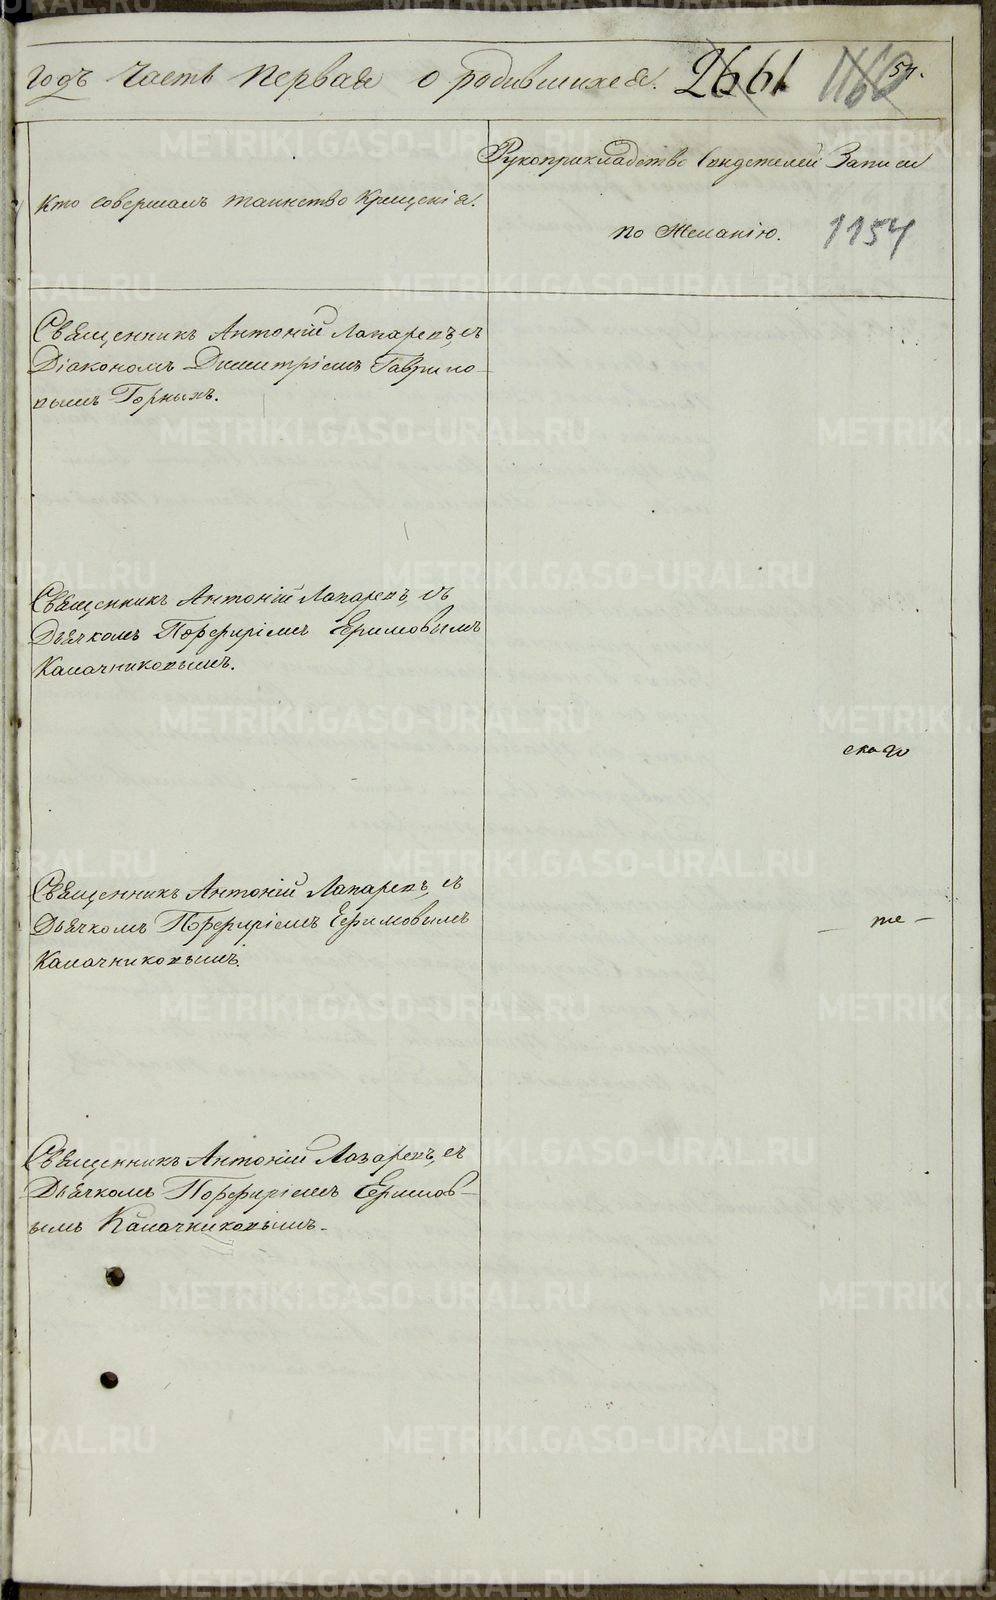 годъ часть первая о родившихся. 2661 1160 57.
Кто совершалъ таинство Крещенія.
Рукоприкладство Свидетелей Записи
по Желанію. 1154
Священникъ Антоній Лапаревъ, съ
Діакономъ Димитріемъ Гаврило-
вымъ Горныхъ.
Священникъ Антоній Лапаревъ, съ
Дьячкомъ Порфиріемъ Ефимовымъ
Калачниковымъ.
скаго
Священникъ Антоній Лапаревъ, съ
Дьячкомъ Порфиріемъ Ефимовымъ
Калачниковымъ.
— те —
Священникъ Антоній Лазаревъ, съ
Дьячкомъ Порфиріемъ Ефимов-
ымъ Калачниковымъ.
METRIKI.GASO-URAL.RU